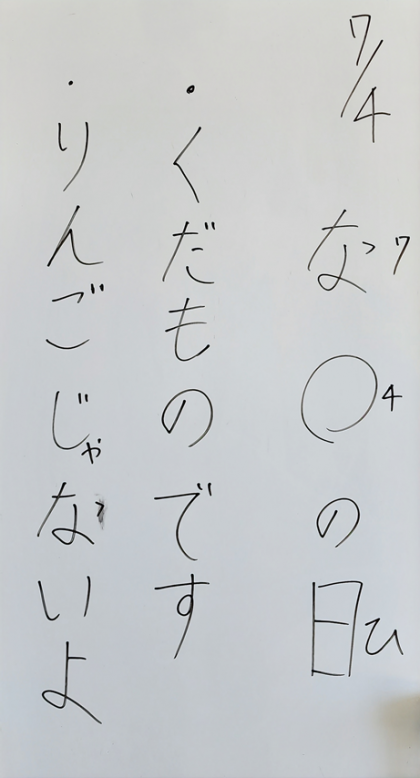 7/4 な7〇4の日ひ
・くだものです
・りんごじゃないよ